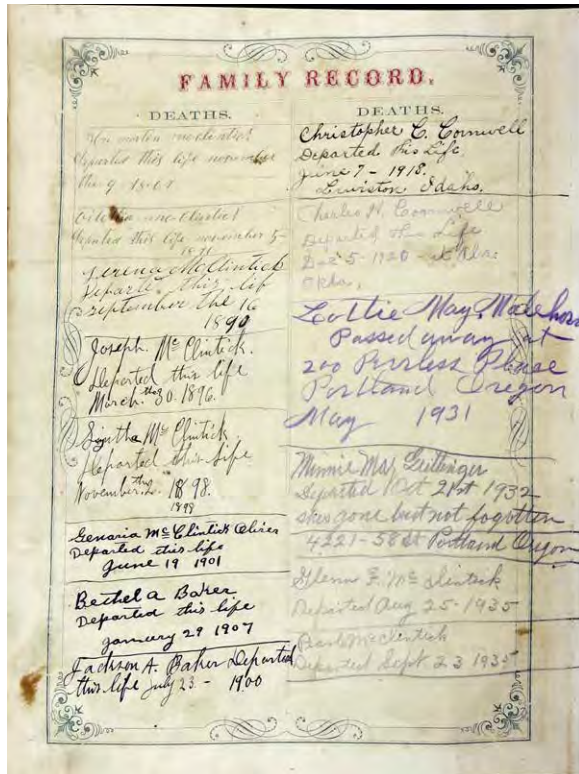 FAMILY RECORD.
DEATHS.
departed this life november
the 9
departed this life november 5
Serena McClintick
Departed this life
september the 16
1890
Joseph Mc Clintick.
Departed this life
March the 30. 1896.
Mc Clintick
departed this life
November the 2. 1898.
1898
Genaria Mc Clintick Oliver
Departed this life
June 19 1901
Bethel a Baker
Departed this life
january 29 1907
Jackson A. Baker Departed
this life July 23 - 1900
DEATHS.
Christopher C. Cornwell
Departed this Life
June 7 - 1918.
Lewiston Idaho.
Charles N. Cornwell
Departed this Life
Dec 5 - 1920 -
Okla.
Lottie May
Passed away at
200 Peerless Please
Portland Oregon
May 1931
Minnie May Gittinger
Departed Oct 21st 1932
shes gone but not fogotten
4221-58 St Portland Oregon
Glenn F. Mc Clintick
Departed Aug 25-1935
Pearl McClintick
Departed Sept. 23 1935